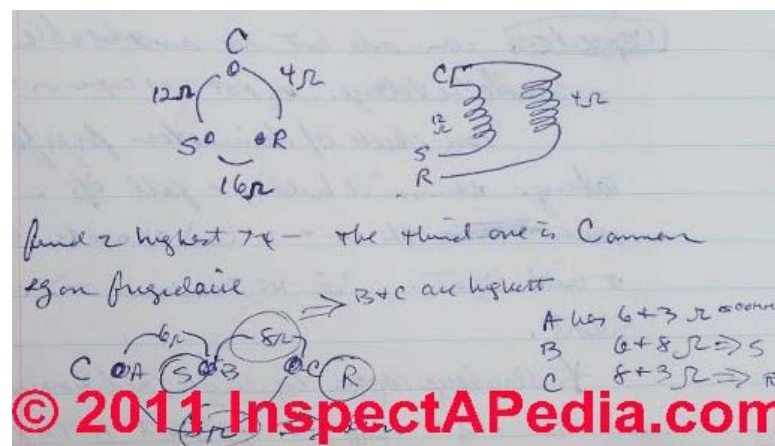 C
12Ω 4Ω
S R
16Ω
C
12Ω 4Ω
S
R
find 2 highest the third one is Common
eg on frigidaire
⇒ B+C are highest
6Ω 8Ω
C A S B C R
A has 6+3 Ω = comm
B 6+8 Ω ⇒ S
C 8+3 Ω ⇒ R
© 2011 InspectAPedia.com